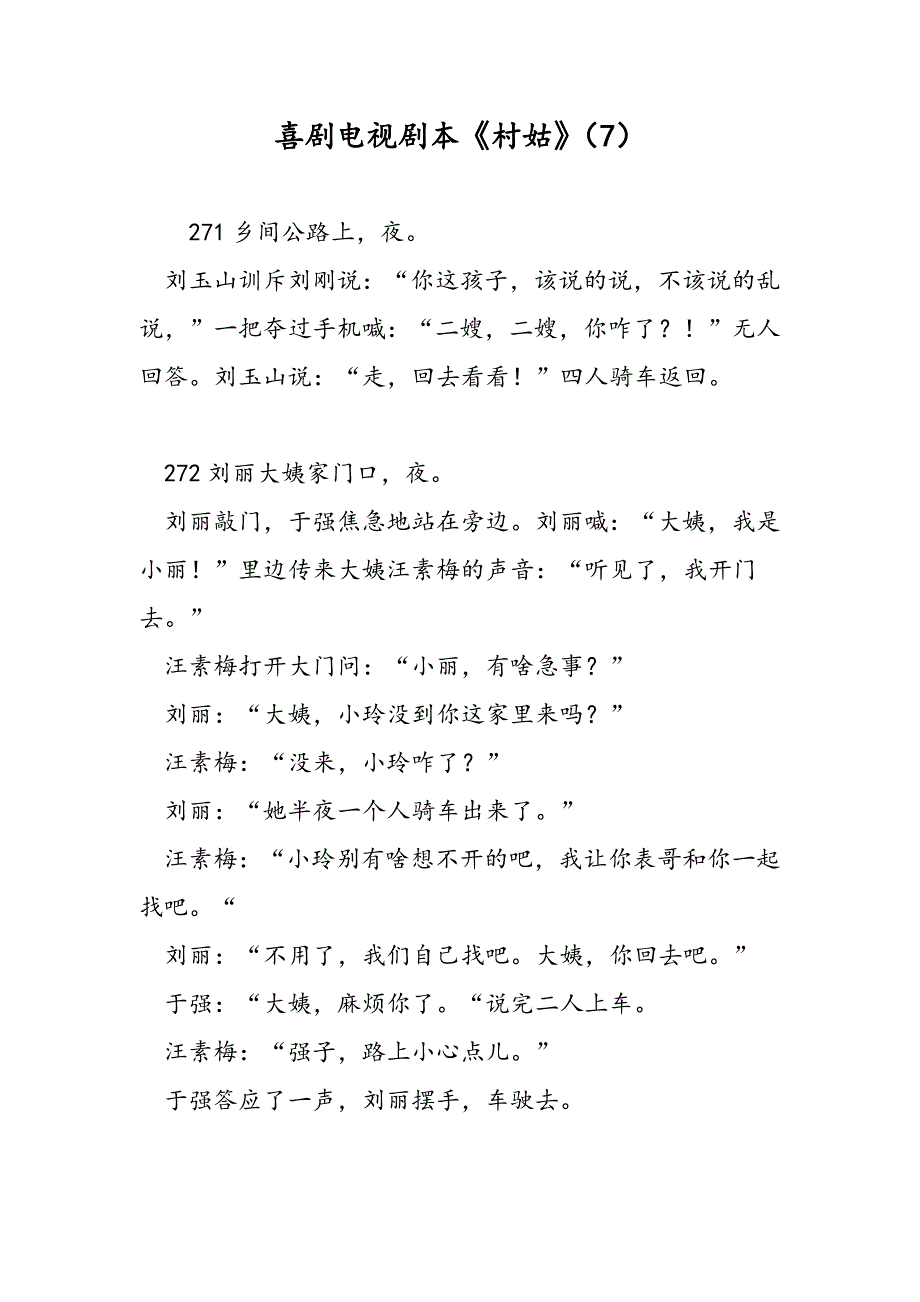 喜剧电视剧本《村姑》（7）
271 乡间公路上，夜。
刘玉山训斥刘刚说：“你这孩子，该说的说，不该说的乱
说，”一把夺过手机喊：“二嫂，二嫂，你咋了？！”无人
回答。刘玉山说：“走，回去看看！”四人骑车返回。
272 刘丽大姨家门口，夜。
刘丽敲门，于强焦急地站在旁边。刘丽喊：“大姨，我是
小丽！”里边传来大姨汪素梅的声音：“听见了，我开门
去。”
汪素梅打开大门问：“小丽，有啥急事？”
刘丽：“大姨，小玲没到你这家里来吗？”
汪素梅：“没来，小玲咋了？”
刘丽：“她半夜一个人骑车出来了。”
汪素梅：“小玲别有啥想不开的吧，我让你表哥和你一起
找吧。“
刘丽：“不用了，我们自己找吧。大姨，你回去吧。”
于强：“大姨，麻烦你了。“说完二人上车。
汪素梅：“强子，路上小心点儿。”
于强答应了一声，刘丽摆手，车驶去。